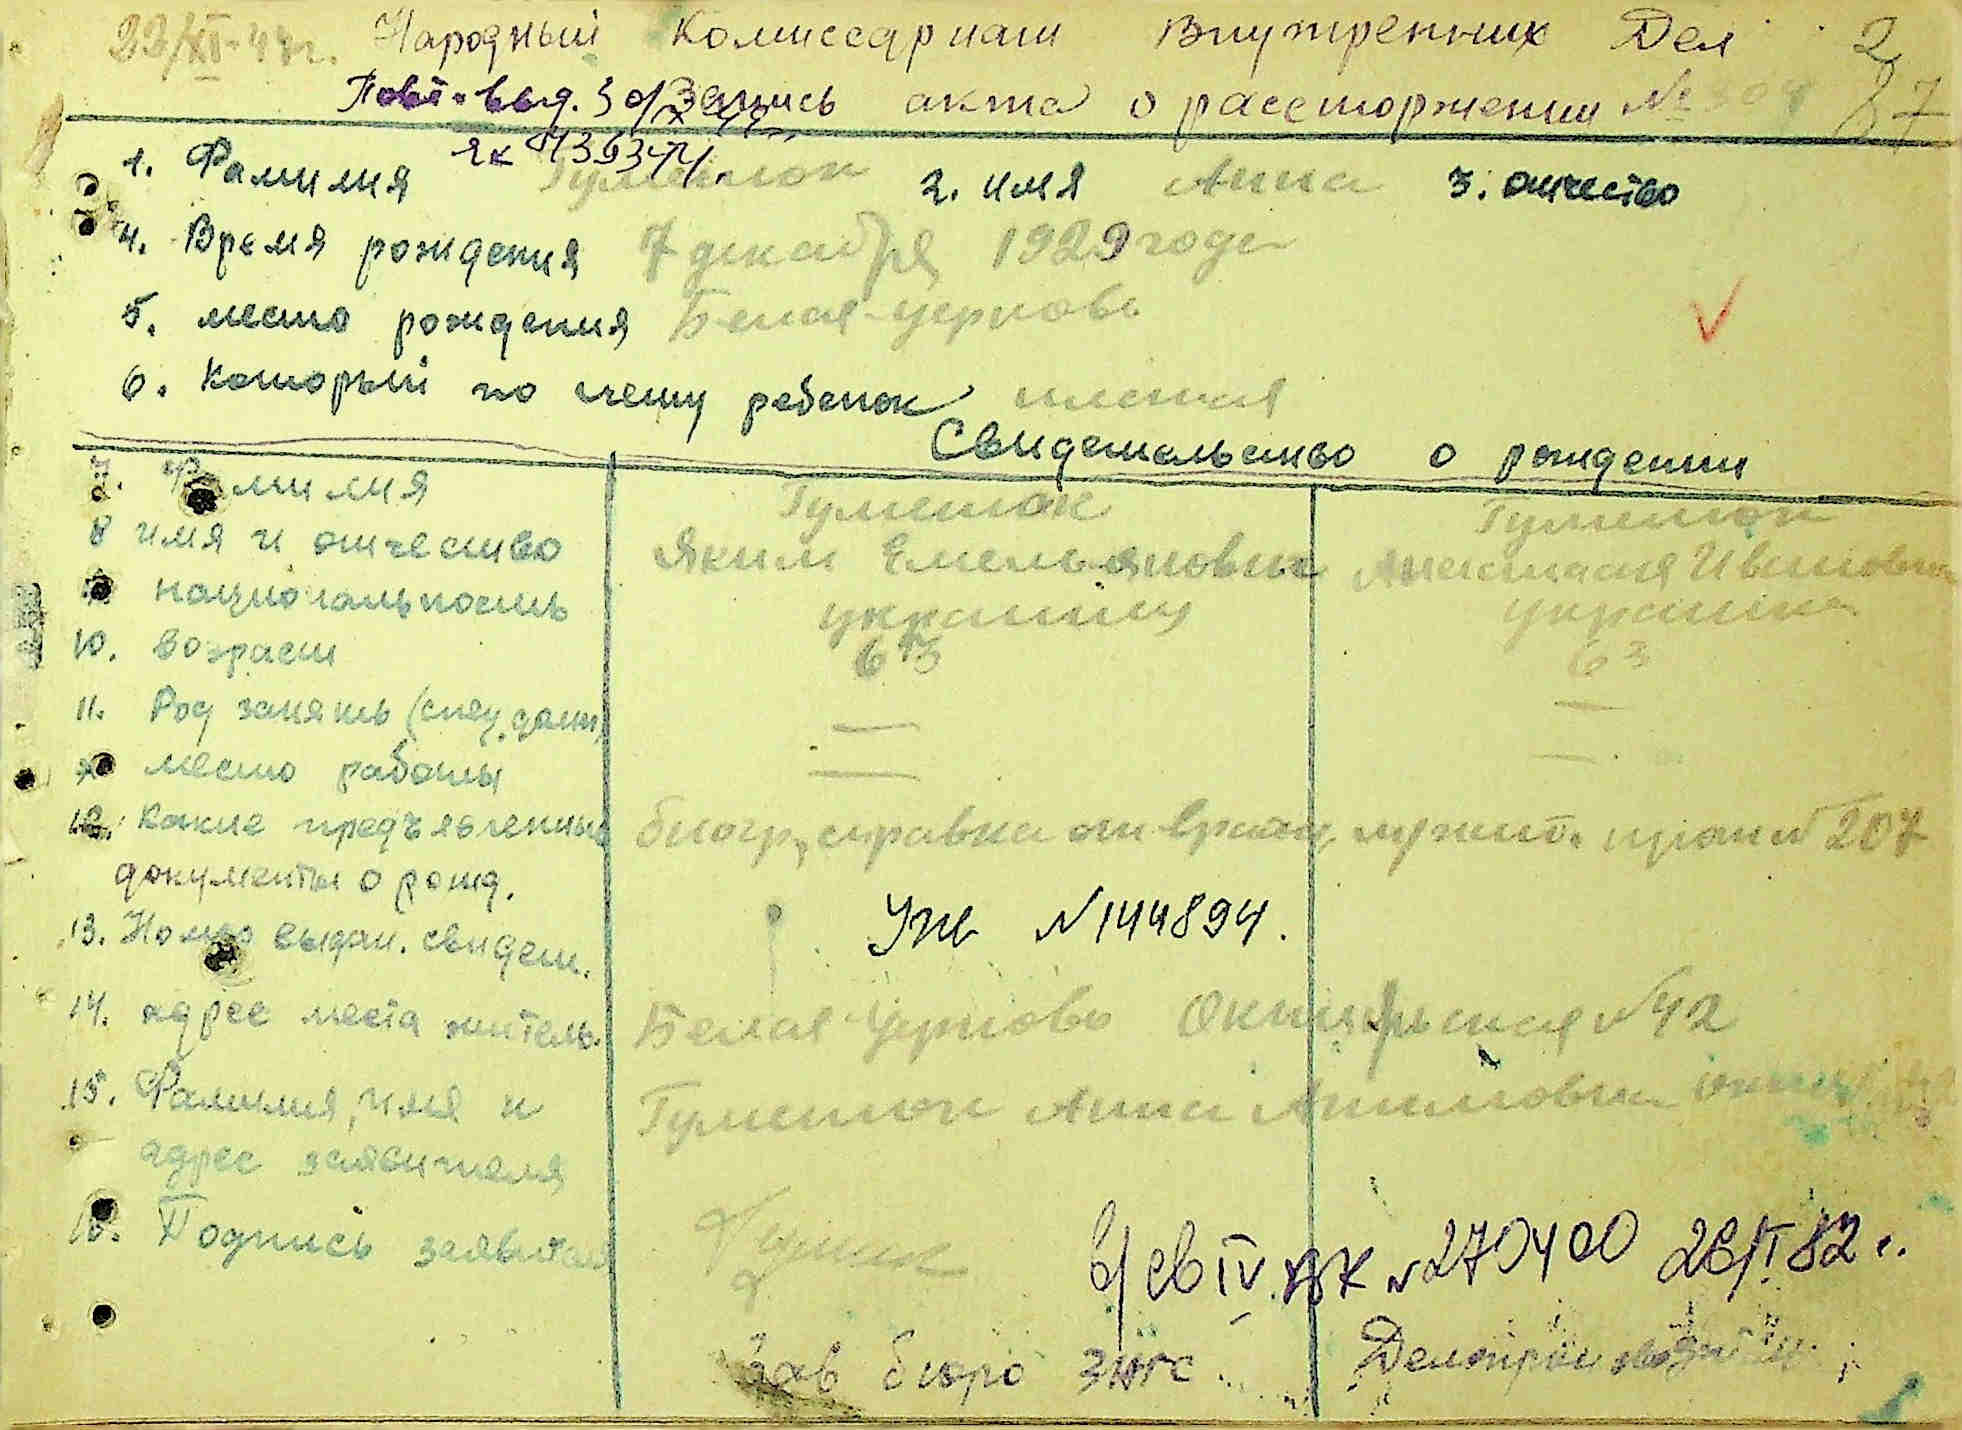 22/XI-44г. Народный Комиссариат Внутренних Дел 2
Повт. выд. 30/X 44 Запись акта о расторжении № 308 87
ЯК 739344.
1. Фамилия Гуменюк 2. имя Анна 3. отчество
4. Время рождения 7 декабря 1929 года
5. место рождения Белая-Церковь
6. Который по счету ребенок шестая
Свидетельство о рождении
7. Фамилия Гуменюк Гуменюк
8 имя и отчество Яким Емельянович Анастасия Ивановна
национальность украинец украинка
10. возраст 63
11. Род занять (спец. долж)
место работы
12. Какие предъявленные биогр, справка от врача,
документы о рожд.
13. Номер выдан. свидет. N 144894.
14. адрес места житель. Белая Церковь Октябрьская N 42
15. Фамилия, имя и Гуменюк Анна Акимовна
адрес заявителя
16. Подпись заявителя
в/св IV N 270400 26/I 82 г.
Зав бюро загс